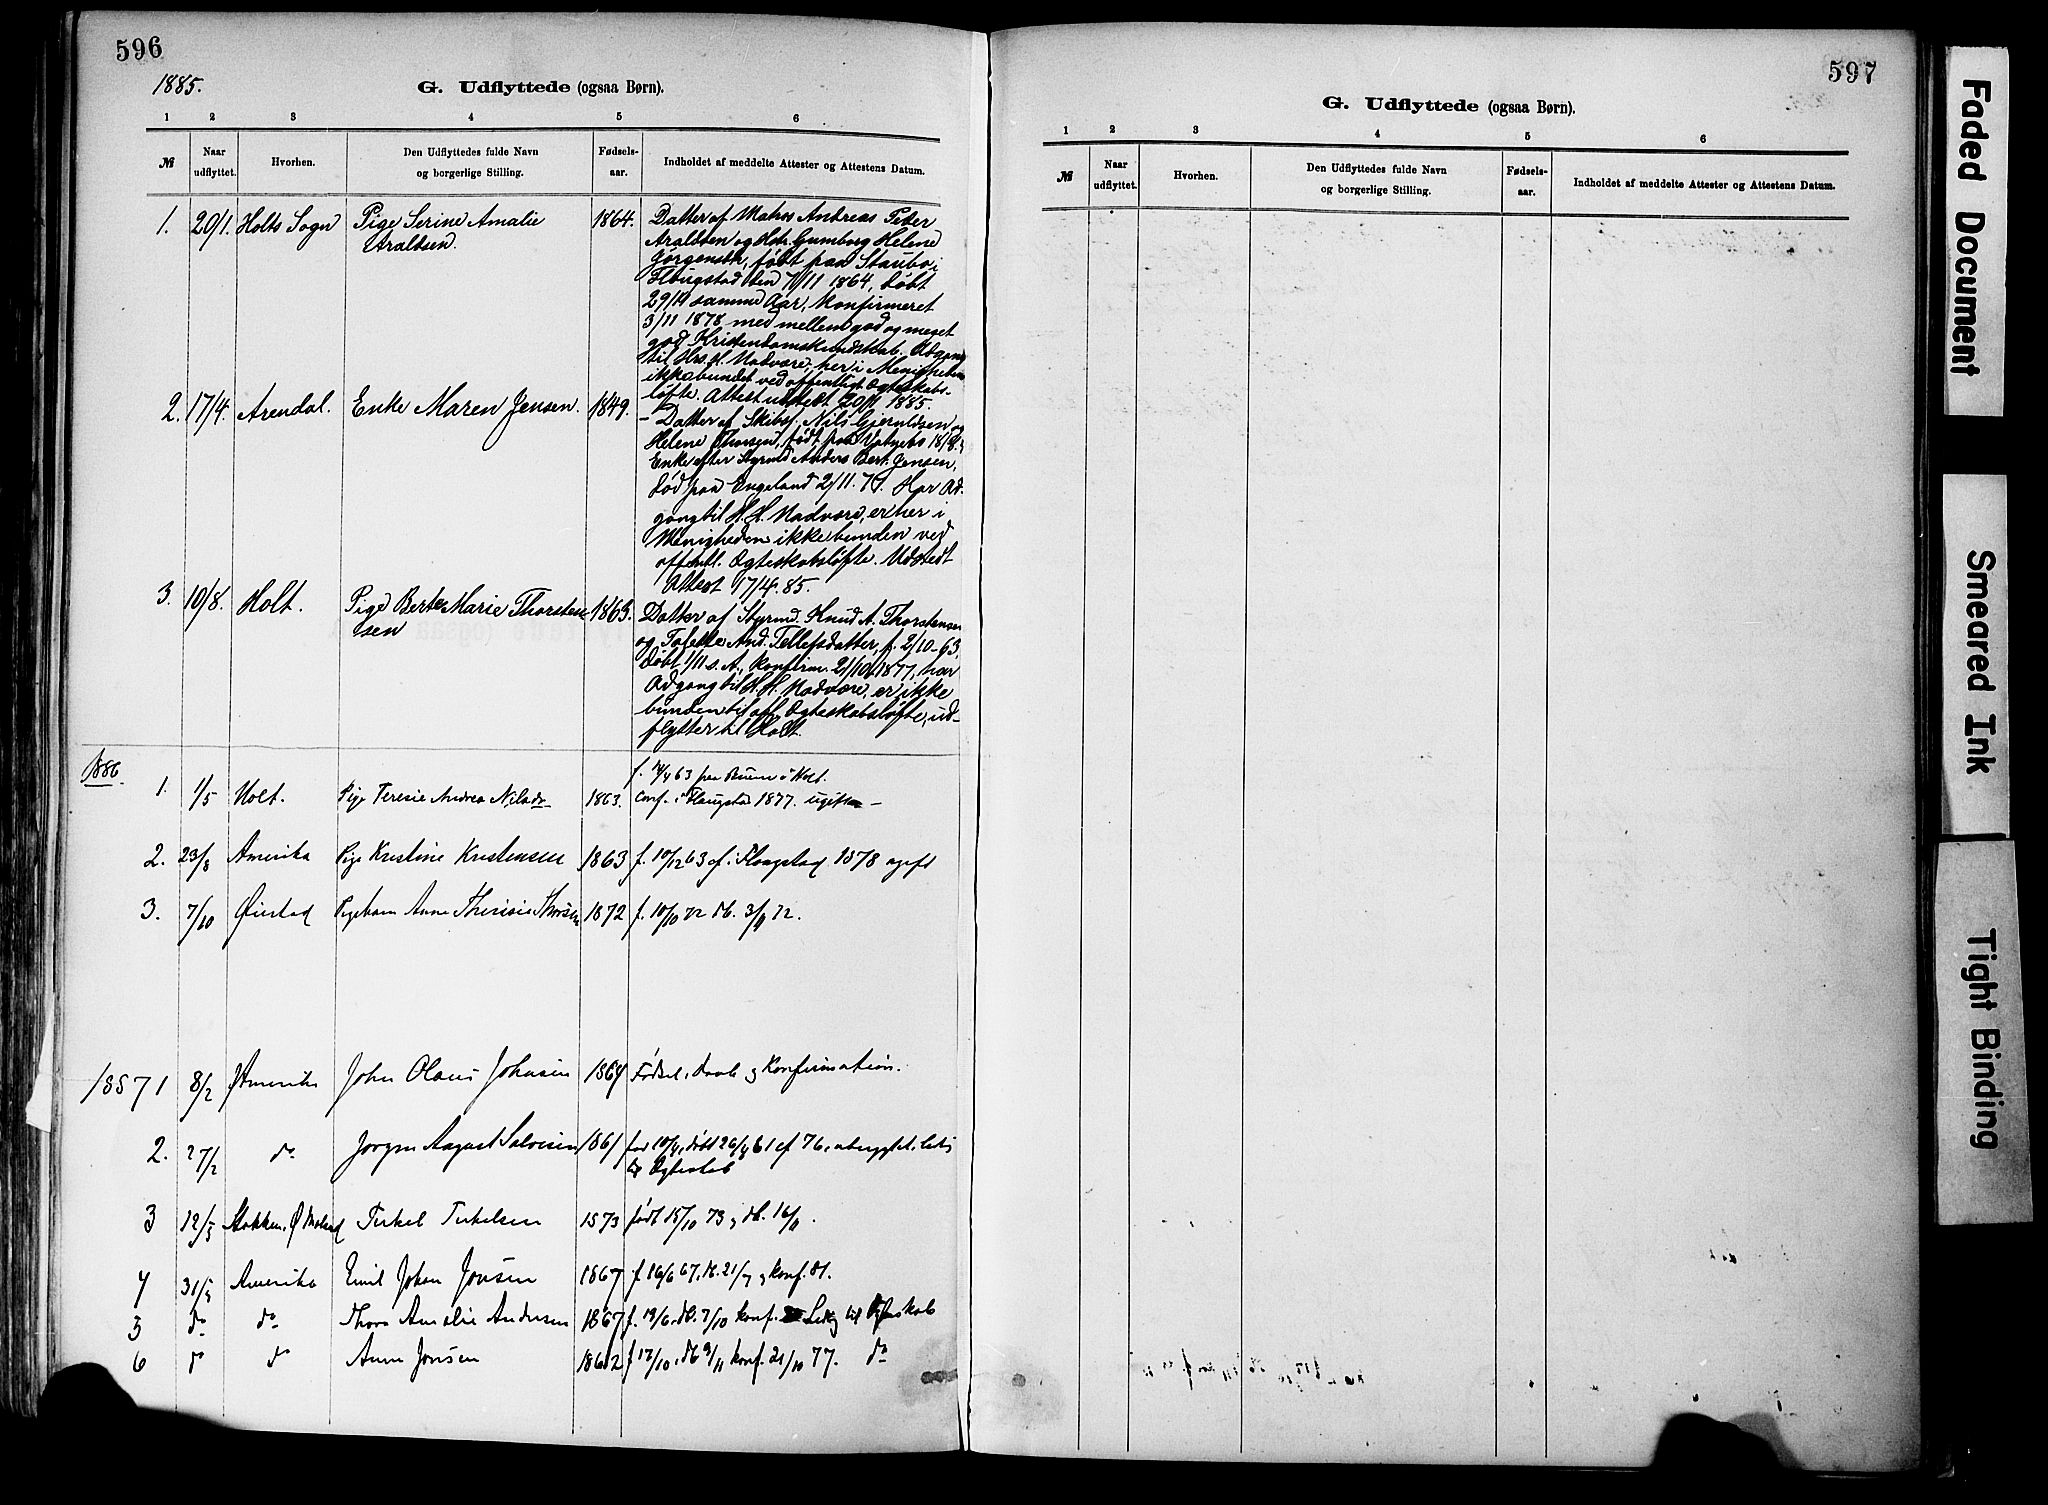 596
1885.
G. Udflyttede (ogsaa Børn).
1 2 3 4 5 6
№ Naar udflyttet. Hvorhen. Den Udflyttedes fulde Navn og borgerlige Stilling. Fødsels-aar. Indholdet af meddelte Attester og Attestens Datum.
1. 20/1. Holts Sogn Pige Serine Amalie 1864. Datter af Matros Andreas Peder
Araldsen.
Araldsen og Hst. Gumborg Helene
Jørgensdtr, født paa Staubø i
Flougstad den 7/11 1864, døbt
29/12 samme Aar, Konfirmeret
3/11 1878 med mellem god og meget
god Kristendomskundskab. Adgang
til Hrs. H. Nadvere, her i Menigheden
ikke bundet ved offentligt Ægteskabs-
løfte. Attest udstedt 20/1 1885.
2. 17/4. Arendal. Enke Maren Jensen. 1849. - Datter af Skibsf. Nils Gjeruldsen og
Helene Thorsen, født paa
Enke efter Styrmd Anders Bert. Jensen,
død paa Engeland 2/11. 71. Har Ad-
gang til H. H. Nadvere, er her i
Menigheden ikke bunden ved
offentl. Ægteskabsløfte. Udstedt
Attest 17/4. 85.
3. 10/8. Holt. Pige Berte Marie Thorsten 1863. Datter af Styrmd. Knud A. Thorstensen
sen
og Tofelle And. Tellefsdatter, f. 2/10-63,
døbt 1/11 s. A., konfirm. 21/10 1877, har
Adgang til H. H. Nadvere, er ikke
bunden til off. Ægteskabsløfte, ud-
flytter til Holt.
1886.
1. 1/5 Holt. Pige Teresie Andrea Nilsdr 1863. f. 14/4 63 paa i Holt.
Conf. i Flaugstad 1877. ugift -
2. 23/8 Amerika Pige Kristine Kristensen 1863 f. 10/12 63 cf. i Flaugstad 1878 ugift
3. 7/10 Øiestad Pigebarn Anne Theresie Thorsen 1872 f. 10/10 72 db. 3/11 72.
1887 1 8/2 Amerika John Olaus Johnsen 1864 Fødsel, Daab og Konfirmation.
2. 27/2 do Jørgen August Salvesen 1861 fød 10/4, døbt 26/4 61 cf 76,
til Ægteskab
3 12/5 Stokken, Ø Moland Terkel Terkelsen 1873 født 15/10 73, db. 16/11.
4 31/5 Amerika Emil Johan Jonsen 1867 f. 16/6 67, db. 21/7 og konf. 81.
5 do do Thora Amalie Andersen 1867 f. 19/6. db. 7/10 konf. Ledig til Ægteskab
6 do do Anne Jonsen 1862 f 12/10, db 9/11 konf. 21/10 77. do
597
G. Udflyttede (ogsaa Børn).
1 2 3 4 5 6
№ Naar udflyttet. Hvorhen. Den Udflyttedes fulde Navn og borgerlige Stilling. Fødsels-aar. Indholdet af meddelte Attester og Attestens Datum.
Faded Document
Smeared Ink
Tight Binding